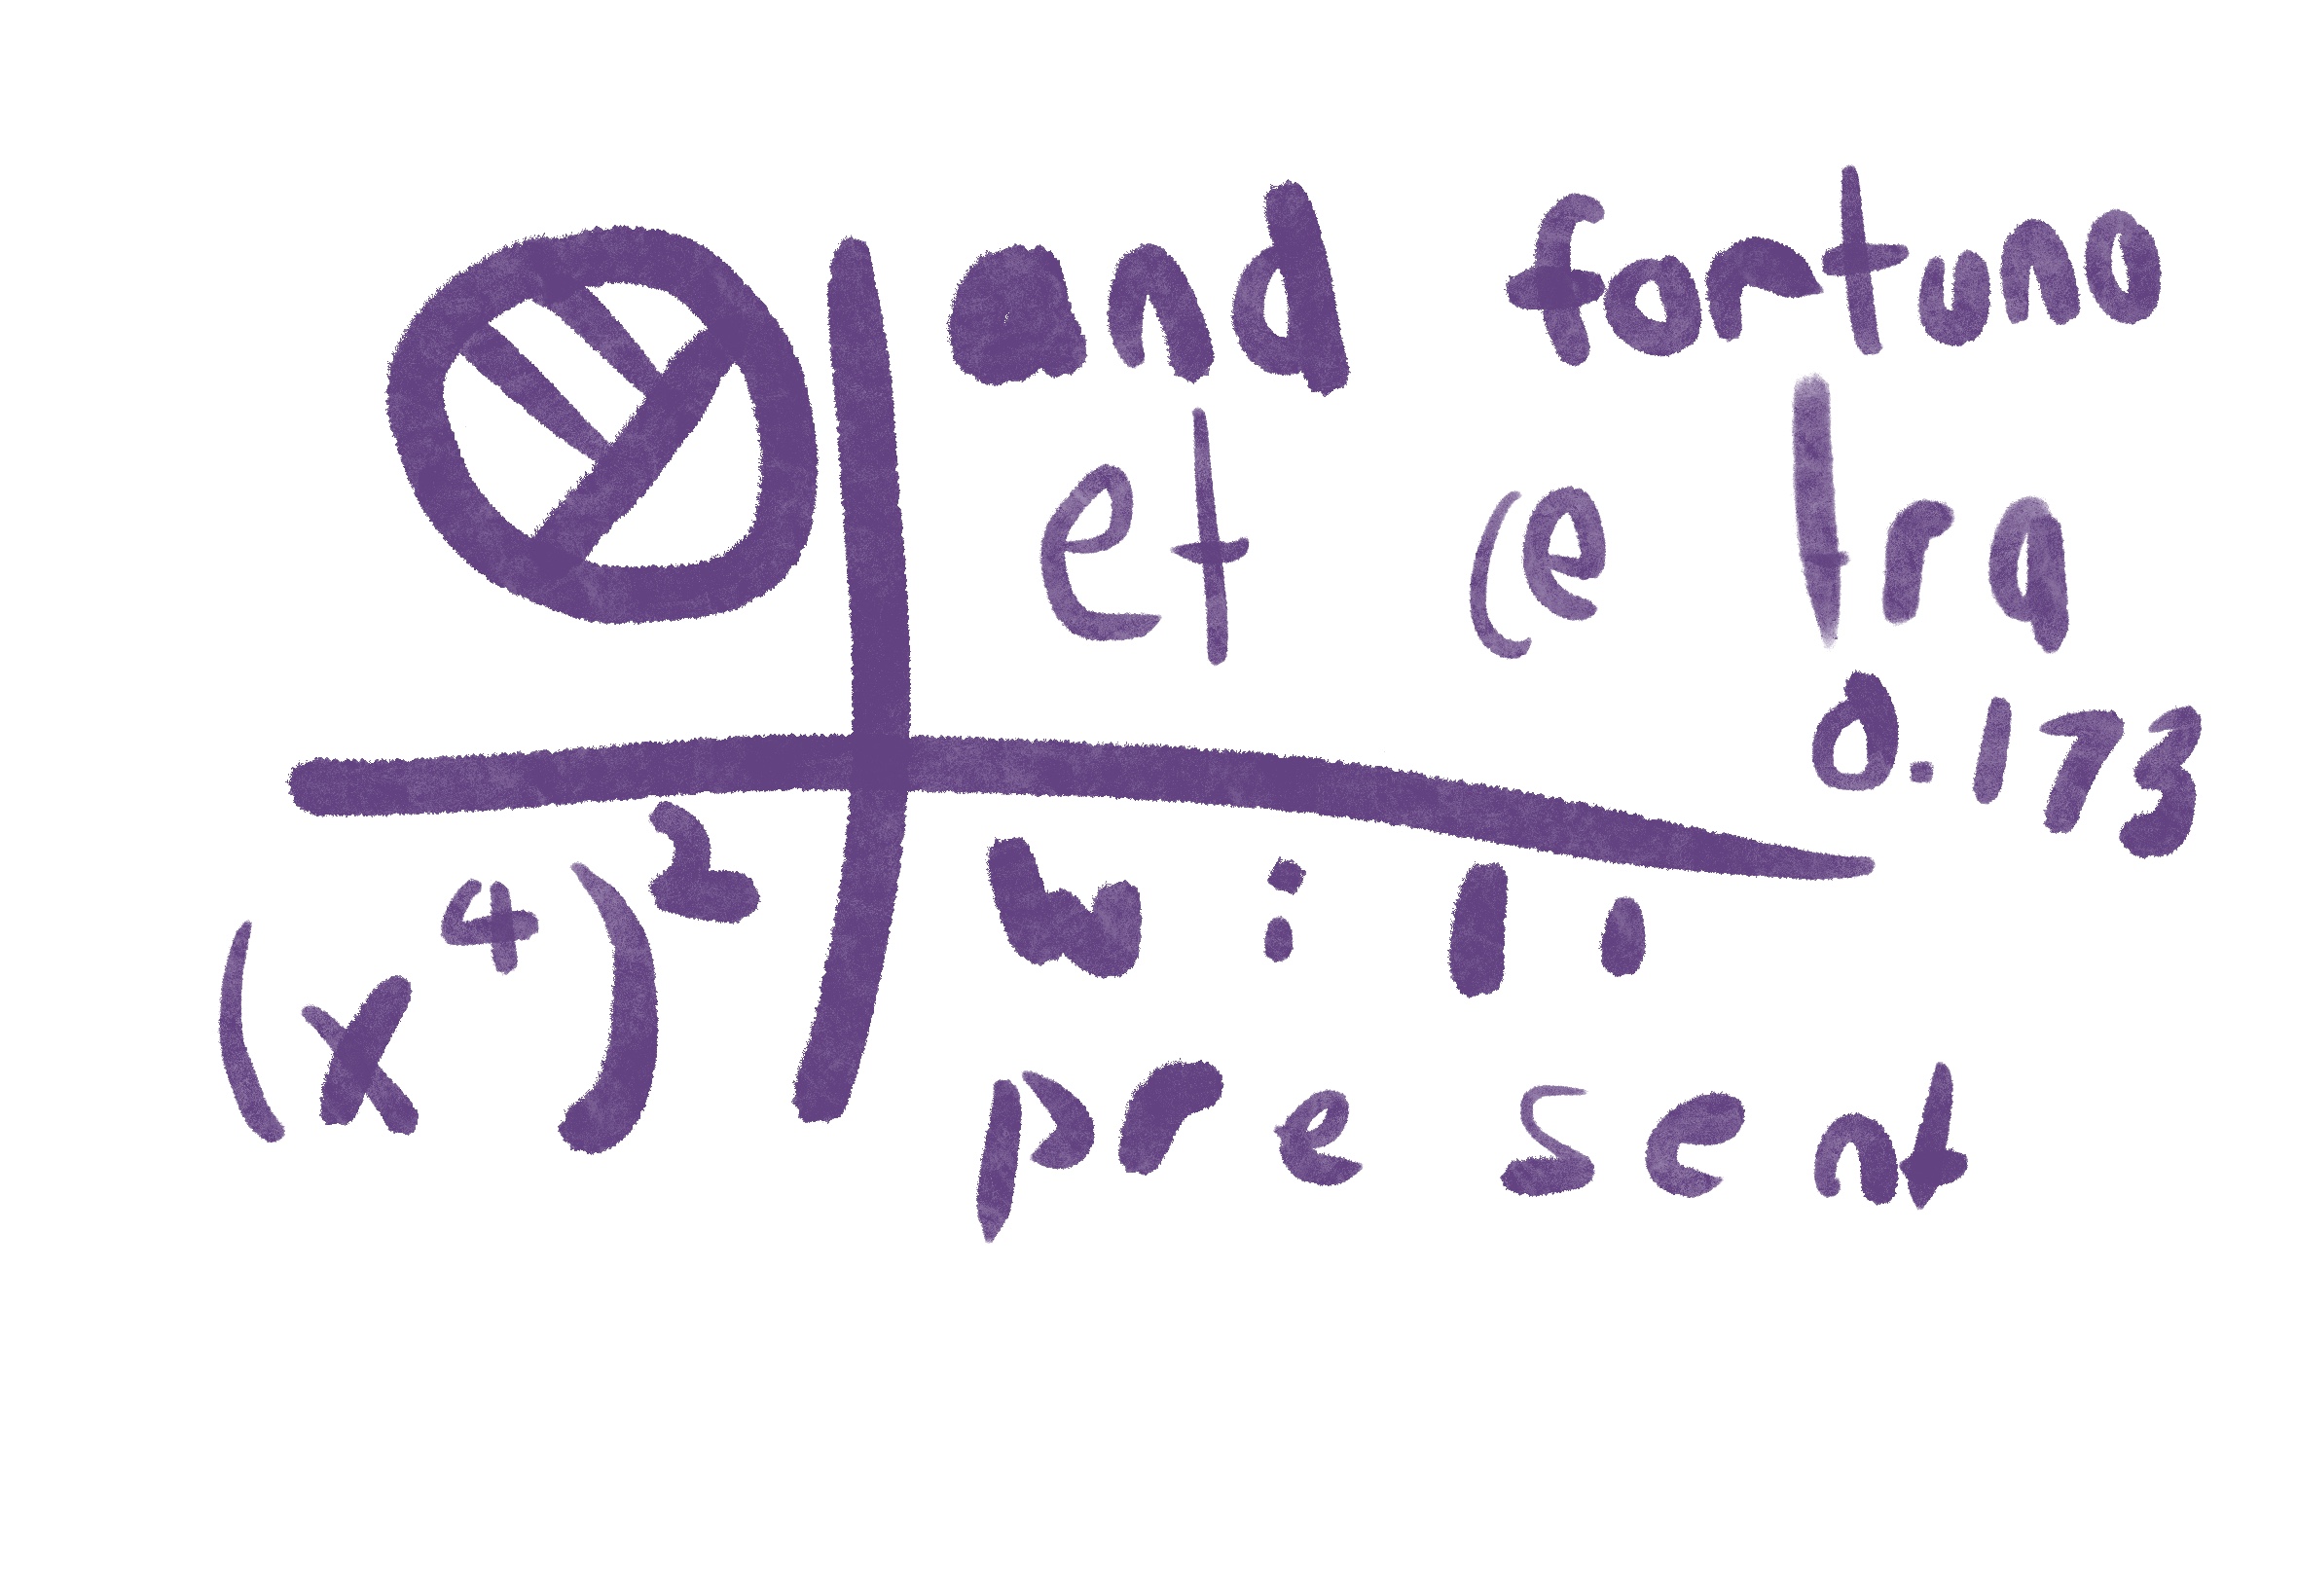 and fortuno
et cetra
0.173
(x⁴)²
will
present